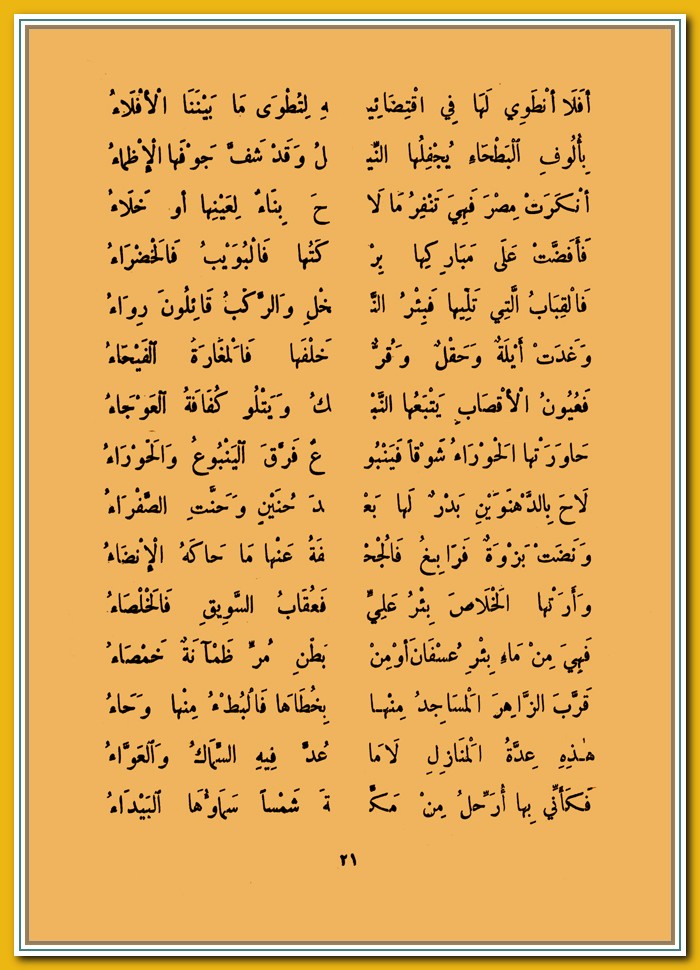 أَفَلَا أَنْطَوِي لَهَا فِي اقْتِضَائِيـ ـهِ لِتُطْوَى مَا بَيْنَنَا الْأَفْلَاءُ
بِأَلُوفِ الْبَطْحَاءِ يُجْفِلُهَا النِّيـ ـلُ وَقَدْ شَفَّ جَوْفَهَا الْإِظْمَاءُ
أَنْكَرَتْ مِصْرَ فَهِيَ تَنْفِرُ مَا لَا حَ بِنَاءٌ لِعَيْنِهَا أَو خَلَاءُ
فَأَفَضَّتْ عَلَى مَبَارِكِهَا بِرْ كَتُهَا فَالْبُوَيْبُ فَالْخَضْرَاءُ
فَالْقِبَابُ الَّتِي تَلِيهَا فَبِئْرُ النَّـ ـخْلِ وَالرَّكْبُ قَائِلُونَ رِوَاءُ
وَغَدَتْ أَيْلَةٌ وَحَقْلٌ وَقُرٌّ خَلْفَهَا فَالْمَغَارَةُ الْفَيْحَاءُ
فَعُيُونُ الْأَقْصَابِ يَتْبَعُهَا النَّبْـ ـكُ وَيَتْلُو كُفَافَةُ الْعَوْجَاءُ
حَاوَرَتْهَا الْحَوْرَاءُ شَوْقاً فَيَنْبُو عٌ فَرَّقَ الْيَنْبُوعُ وَالْحَوْرَاءُ
لَاحَ بِالدَّهْنَوَيْنِ بَدْرٌ لَهَا بَعْـ ـدَ حُنَيْنٍ وَحَنَّتِ الصَّفْرَاءُ
وَنَضَتْ بَزْوَةٌ فَرَابِغُ فَالْجُحْـ ـفَةُ عَنْهَا مَا حَاكَهُ الْإِنْضَاءُ
وَأَرَتْهَا الْخَلَاصَ بِئْرُ عَلِيٍّ فَعُقَابُ السَّوِيقِ فَالْخَلْصَاءُ
فَهِيَ مِنْ مَاءِ بِئْرِ عُسْفَانَ أَوْ مِنْ بَطْنِ مُرٍّ ظَمْآنَةٌ خَمْصَاءُ
قَرَّبَ الزَّاهِرَ الْمَسَاجِدُ مِنْهَا بِخُطَاهَا فَالْبُطْءُ مِنْهَا وَحَاءُ
هٰذِهِ عِدَّةُ الْمَنَازِلِ لَا مَا عُدَّ فِيهِ السِّمَاكُ وَالْعَوَّاءُ
فَكَأَنِّي بِهَا أُرَحِّلُ مِنْ مَكَّـ ـةَ شَمْساً سَمَاوُهَا الْبَيْدَاءُ
٢١